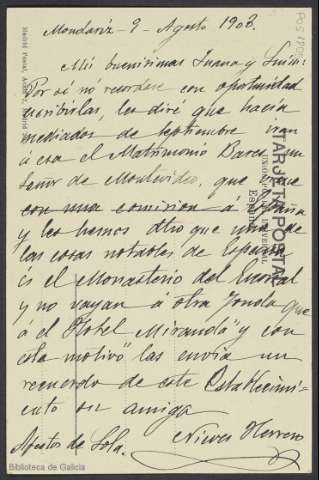 Mondariz - 9 - Agosto 1903.
Mis buenisimas Juana y Luisa:
Por si nó recordase con oportunidad
escribirlas, les diré que hacia
mediados de Septiembre irán
á esa el Matrimonio Barca, un
Señor de Montevideo, que
con una comision á
y les hemos dho que una de
las cosas notables de España
és el Monasterio del Escorial
y no vayan á otra Fonda que
á el Hotel Miranda" y con
este motivo" las envia un
recuerdo de este Establecimi-
ento su amiga
Afectos de Lola. Nieves Herrero
TARJETA POSTAL
UNION POSTAL UNIVERSAL
España
Madrid Postal, Madrid
Biblioteca de Galicia